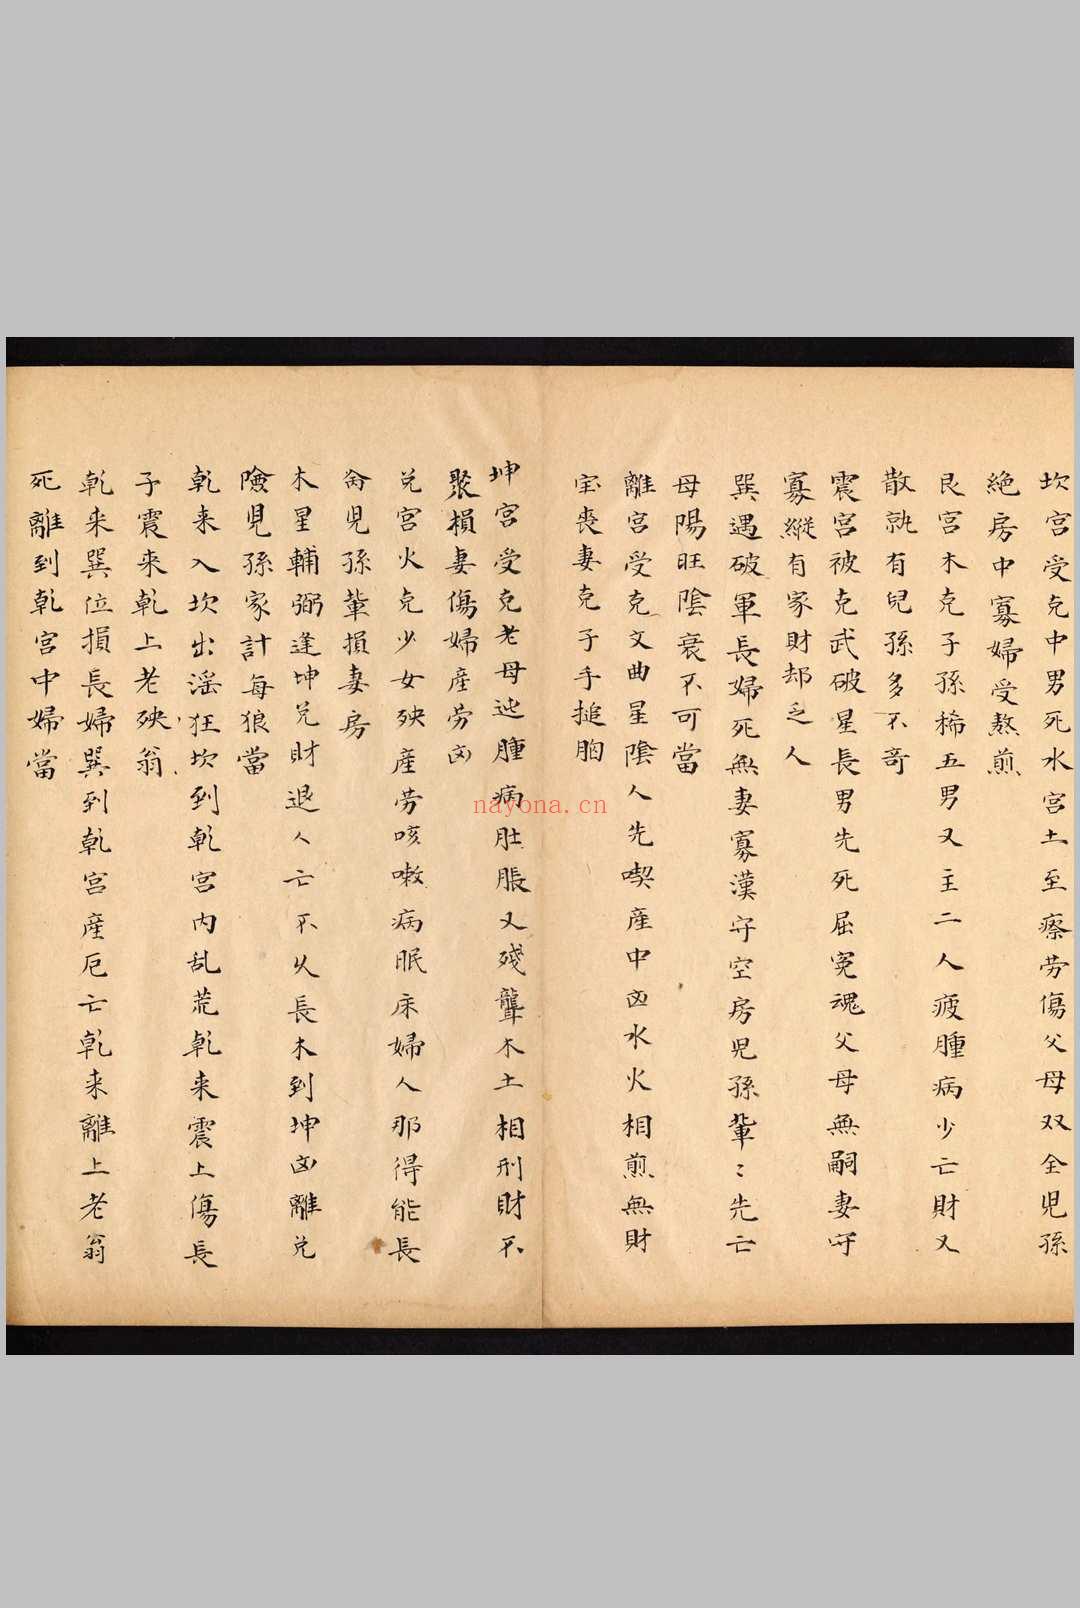 坎宮受克中男死水宮土至瘵劳傷父母双全児孫
絶房中寡婦受熬煎
艮宮木克子孫稀五男又主二人疲腫病少亡財又
散就有兒孫多不奇
震宮被克武破星長男先死屈冤魂父母無嗣妻守
寡縱有家財却乏人
巽遇破軍長婦死無妻寡漢守空房児孫輩〻先亡
母陽旺陰衰不可當
離宮受克文曲星陰人先喫產中凶水火相煎無財
宝丧妻克子手搥胸
坤宮受克老母迍腫病肚脹又殘聾木土相刑財不
聚損妻傷婦產劳凶
兑宮火克少女殃產劳咳嗽病眠床婦人那得能長
命児孫輩損妻房
木星輔弼逢坤兑財退人亡不从長木到坤凶離兑
險児孫家計每狼當
乾来入坎出滛狂坎到乾宮内乱荒乾来震上傷長
子震来乾上老殃翁
乾来巽位損長婦巽到乾宮產厄亡乾来離上老翁
死離到乾宮中婦當
nayona.cn